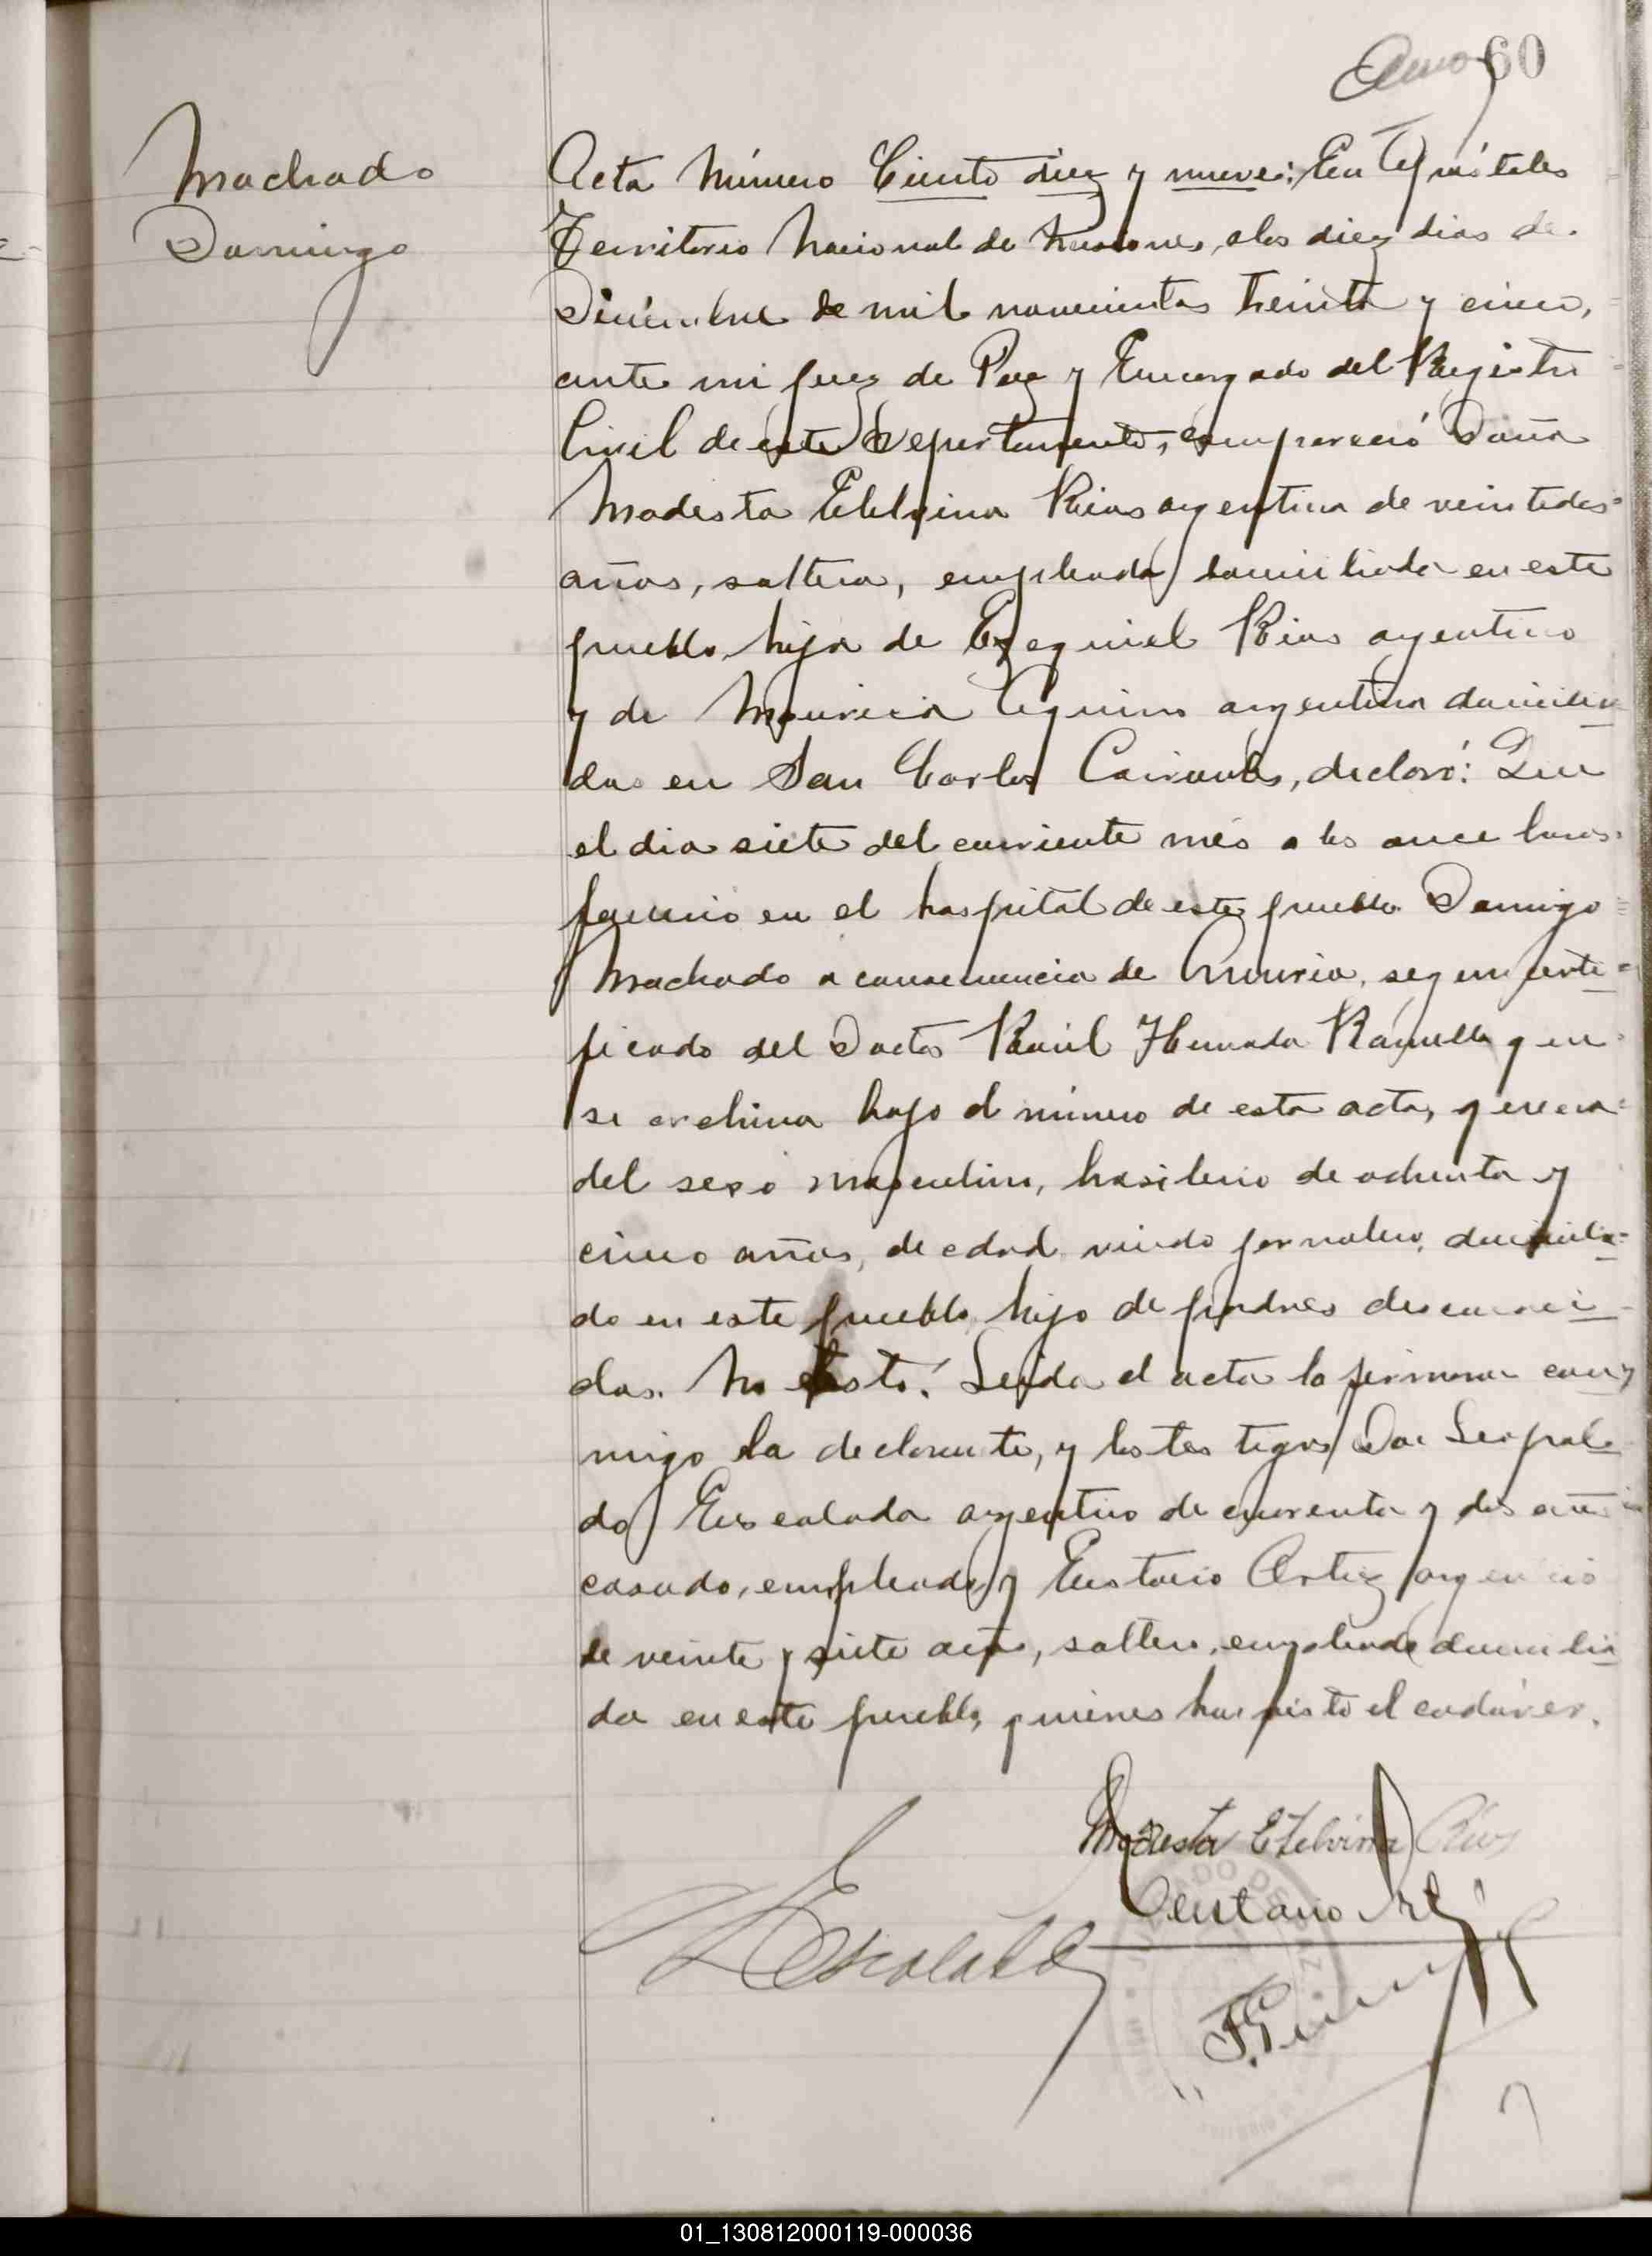 60
Machado
Domingo
Acta Número Ciento diez y nueve: En Apóstoles
Territorio Nacional de Misiones, a los diez dias de
Diciembre de mil novecientos treinta y cinco,
ante mi Juez de Paz y Encargado del Registro
Civil de este Departamento, compareció Doña
Modesta Etelvina Rios argentina de veintedos
años, soltera, empleada domiciliada en este
pueblo, hija de Ezequiel Rios argentino
y de Mauricia Aquino argentina domicilia
dos en San Carlos Corrientes, declaró: Que
el dia siete del corriente més a las once horas
fallecio en el hospital de este pueblo Domingo
Machado a consecuencia de segun certi=
ficado del Doctor Raúl que
se archiva bajo el número de esta acta, que era
del sexo masculino, brasilero de ochenta y
cinco años, de edad viudo jornalero, domicilia=
do en este pueblo, hijo de padres desconoci-
dos. No testó. Leida el acta la firmaron con
migo la declarante, y los testigos Don Leopol
do Escalada argentino de cuarenta y dos años
casado, empleado y Eustacio Ortiz argentino
de veinte y siete años, soltero, empleado domicilia
do en este pueblo, quienes han visto el cadáver.
Modesta Etelvina Rios
Eustacio Ortiz
L Escalada
JUZGADO DE PAZ
01_130812000119-000036